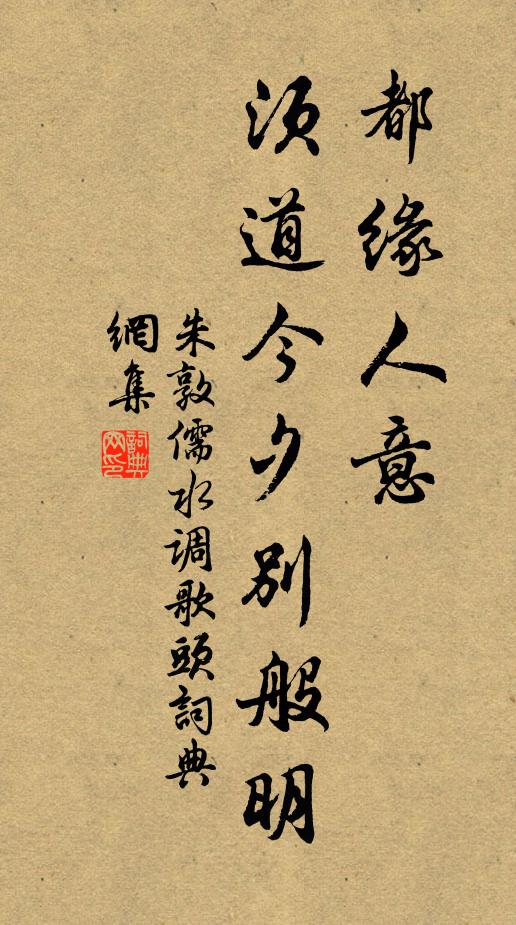 都缘人意
須道今夕別般明
朱敦儒水调歌頭詞典
網集
詞典網印